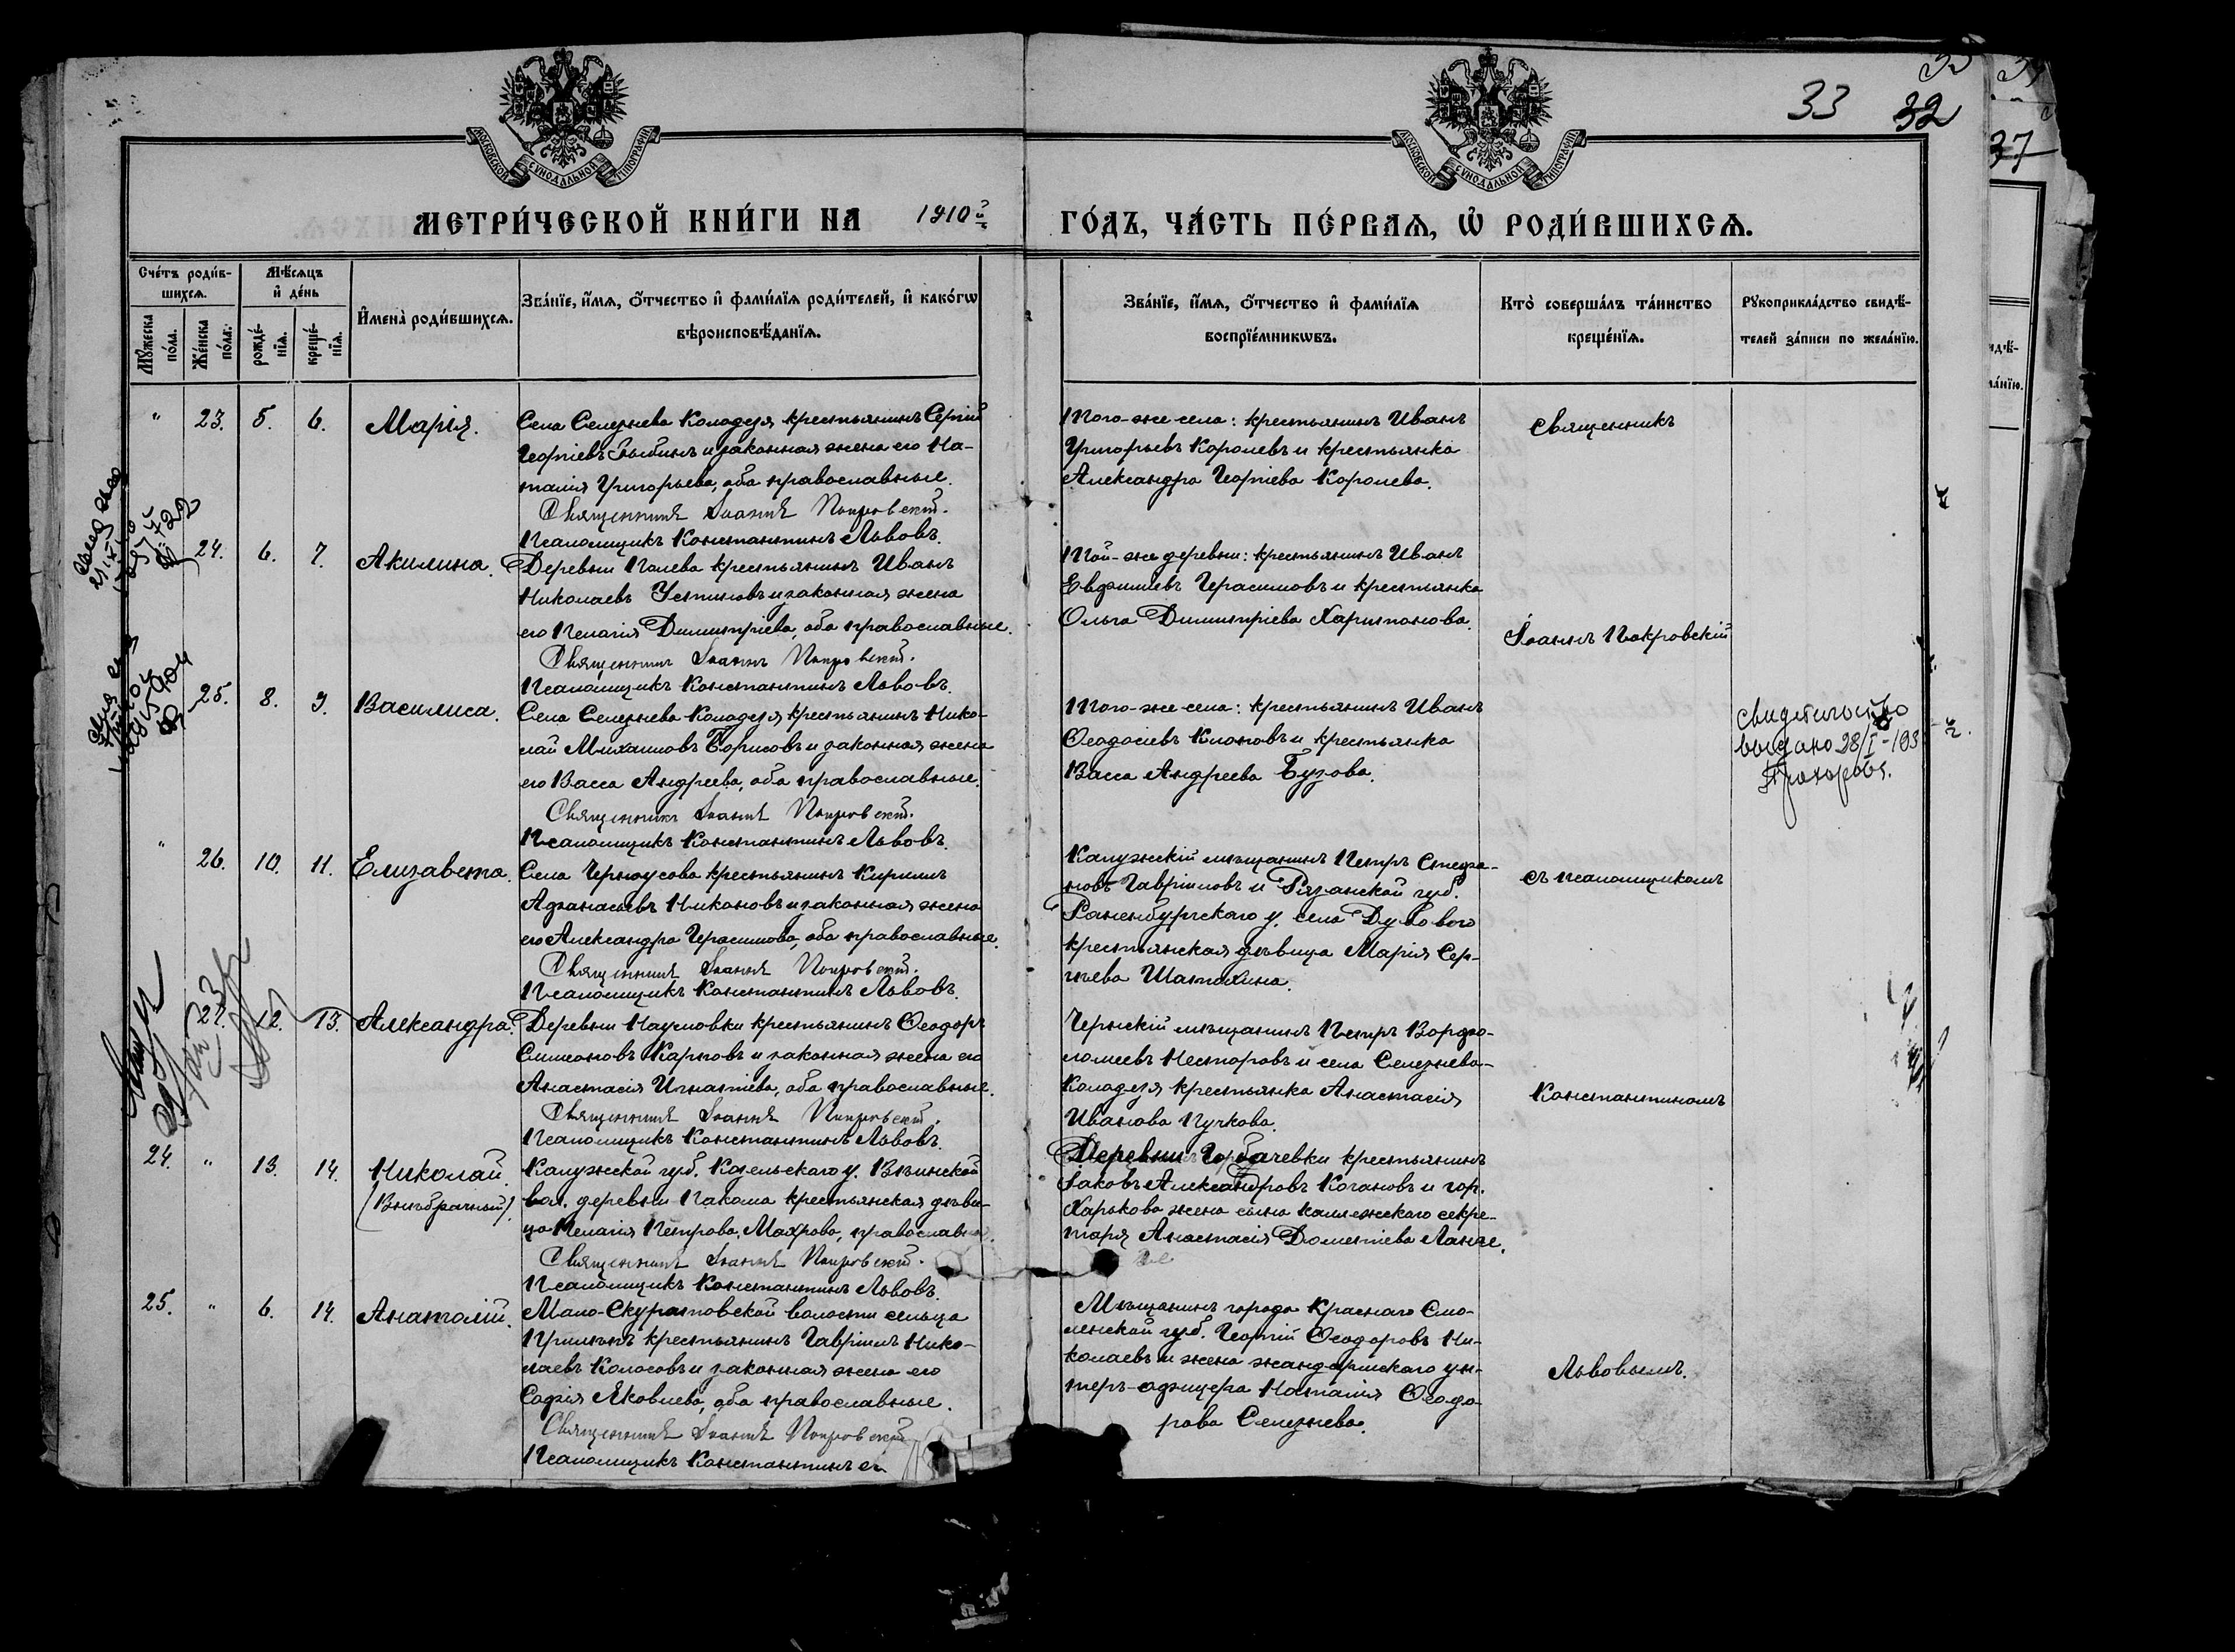 МОСКОВСКОЙ СѴНОДАЛЬНОЙ ТИПОГРАФІИ
МОСКОВСКОЙ СѴНОДАЛЬНОЙ ТИПОГРАФІИ
33 32
37
МЕТРИ́ЧЕСКОЙ КНИ́ГИ НА 1910й
ГО́ДЪ, ЧА́СТЬ ПЕ́РВАѦ, Ѡ҆ РОДИ́ВШИХСѦ.
Сче́тъ роди́в-
шихсѧ.
Мꙋ́жеска
по́ла.
Же́нска
по́ла.
Мѣ́сѧцъ
и҆ де́нь
рожде́-
нїѧ.
креще́-
нїѧ.
И҆мена̀ роди́вшихсѧ.
Зва́нїе, и҆́мѧ, ѻ҆́тчество и҆ фами́лїѧ роди́телей, и҆ како́гѡ
вѣроисповѣ́данїѧ.
Зва́нїе, и҆́мѧ, ѻ҆́тчество и҆ фами́лїѧ
воспрїе́мникѡвъ.
Кто̀ соверша́лъ та́инство
креще́нїѧ.
Рꙋкоприкла́дство свидѣ́-
телей за́писи по жела́нїю.
" 23. 5. 6. Марія.
Села Селезнева Колодезя крестьянинъ Сергій
Георгіевъ Зыбинъ и законная жена его На-
талія Григорьева, оба православные.
Священникъ Іоаннъ Покровскій.
Псаломщикъ Константинъ Львовъ.
Того-же села: крестьянинъ Иванъ
Григорьевъ Королевъ и крестьянка
Александра Георгіева Королева.
Священникъ
24. 6. 7. Акилина.
Деревни Голева крестьянинъ Иванъ
Николаевъ Устиновъ и законная жена
его Пелагія Димитріева, оба православные.
Священникъ Іоаннъ Покровскій.
Псаломщикъ Константинъ Львовъ.
Той-же деревни: крестьянинъ Иванъ
Евфиміевъ Герасимовъ и крестьянка
Ольга Димитріева Харитонова.
Іоаннъ Покровскій
25. 8. 9. Василиса.
Села Селезнева Колодезя крестьянинъ Нико-
лай Михаиловъ Борисовъ и законная жена
его Васса Андреева, оба православные.
Священникъ Іоаннъ Покровскій.
Псаломщикъ Константинъ Львовъ.
Того-же села: крестьянинъ Иванъ
Ѳеодосіевъ Клоповъ и крестьянка
Васса Андреева Бузова.
Свидетельство
выдано 28/I-193
" 26. 10. 11. Елизавета.
Села Черноусова крестьянинъ Кириллъ
Афанасьевъ Никоновъ и законная жена
его Александра Герасимова, оба православные.
Священникъ Іоаннъ Покровскій.
Псаломщикъ Константинъ Львовъ.
Калужскій мѣщанинъ Петръ Стефа-
новъ Гавріиловъ и Рязанской губ.
Раненбургскаго у. села Дубоваго
крестьянская дѣвица Марія Сер-
гѣева Шатохина.
съ псаломщикомъ
27. 12. 13. Александра.
Деревни Наумовки крестьянинъ Ѳеодоръ
Симеоновъ Карповъ и законная жена его
Анастасія Игнатіева, оба православные.
Священникъ Іоаннъ Покровскій.
Псаломщикъ Константинъ Львовъ.
Чернскій мѣщанинъ Петръ Варфо-
ломеевъ Несторовъ и села Селезнева-
Колодезя крестьянка Анастасія
Иванова Пучкова.
Константиномъ
24. " 13. 14. Николай.
(Внѣбрачный).
Калужской губ. Козельскаго у.
вол. деревни крестьянская дѣви-
ца Пелагія Петрова Махрова, православна
Священникъ Іоаннъ Покровскій.
Псаломщикъ Константинъ Львовъ.
Деревни Горбачевки крестьянинъ
Іаковъ Александровъ Когановъ и гор.
Харькова жена сына коллежскаго секре-
таря Анастасія Дометіева Ланге.
25. " 6. 14. Анатолій.
Мало-Скуратовской волости сельца
крестьянинъ Гавріилъ Нико-
лаевъ Колосовъ и законная жена его
Софія Яковлева, оба православные.
Священникъ Іоаннъ Покровскій
Псаломщикъ Константинъ
Мѣщанинъ города Краснаго Смо-
ленской губ. Георгій Ѳеодоровъ Ни-
колаевъ и жена жандармскаго ун-
теръ-офицера Наталія Ѳеодо-
рова Селезнева.
Львовымъ.